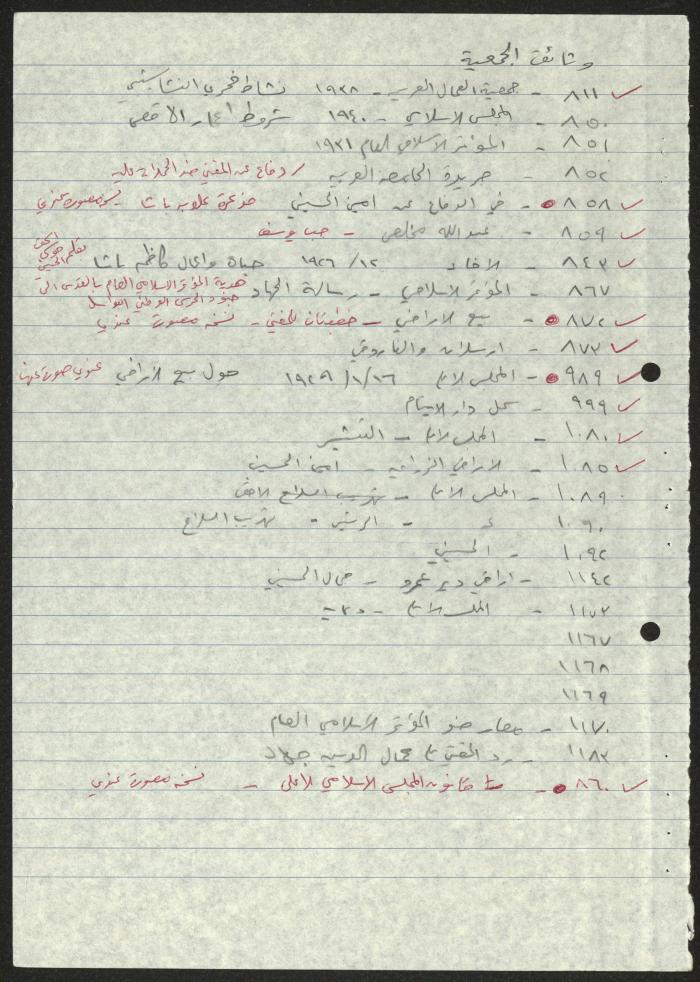 وثائق الجمعية
٨١١ - جمعية العمال العربية - ١٩٣٨ نشاط فخري النشاشيبي
٨٥٠ - المجلس الاسلامي - ١٩٤٠ شروط اعمار الاقصى
٨٥١ - المؤتمر الاسلامي العام ١٩٣١
٨٥٢ - جريدة الجامعة العربية / دفاع عن المفتي ضد الحملات عليه
٨٥٨ - في الدفاع عن امين الحسيني ضد علوبة باشا نسخة مصورة عندي
٨٥٩ - عبدالله مخلص -
٨٤٣ - الاخاء ١٢/ ١٩٢٦ حياة واعمال كاظم باشا بقلم
٨٦٧ - المؤتمر الاسلامي - رسالة الجهاد هدية المؤتمر الاسلامي العام بالقدس الى جنود الحرس الوطني البواسل
٨٧٢ - بيع الاراضي - خطبتان للمفتي - نسخة مصورة عندي
٨٧٣ - ارسلان والفاروقي
٩٨٩ - المجلس الا ١٩٢٩/١/١٦ حول بيع الاراضي عندي صورة عنها
٩٩٩ - سجل دار الايتام
١٠٨٠ - المجلس الا - التبشير
١٠٨٥ - الاراضي الزراعية - امين الحسيني
١٠٨٩ - المجلس الا - تهريب السلاح
١٠٩٠ - - تهريب السلاح
١٠٩٢ - الحسيني
١١٤٢ - اراضي دير عمرو - جمال الحسيني
١١٧٣ - المجلس الا -
١١٦٧
١١٦٨
١١٦٩
١١٧٠ - ضد المؤتمر الاسلامي العام
١١٨٣ - رد المفتي على جمال الدين
٨٦٠ - قانون المجلس الاسلامي الاعلى - نسخة مصورة عندي